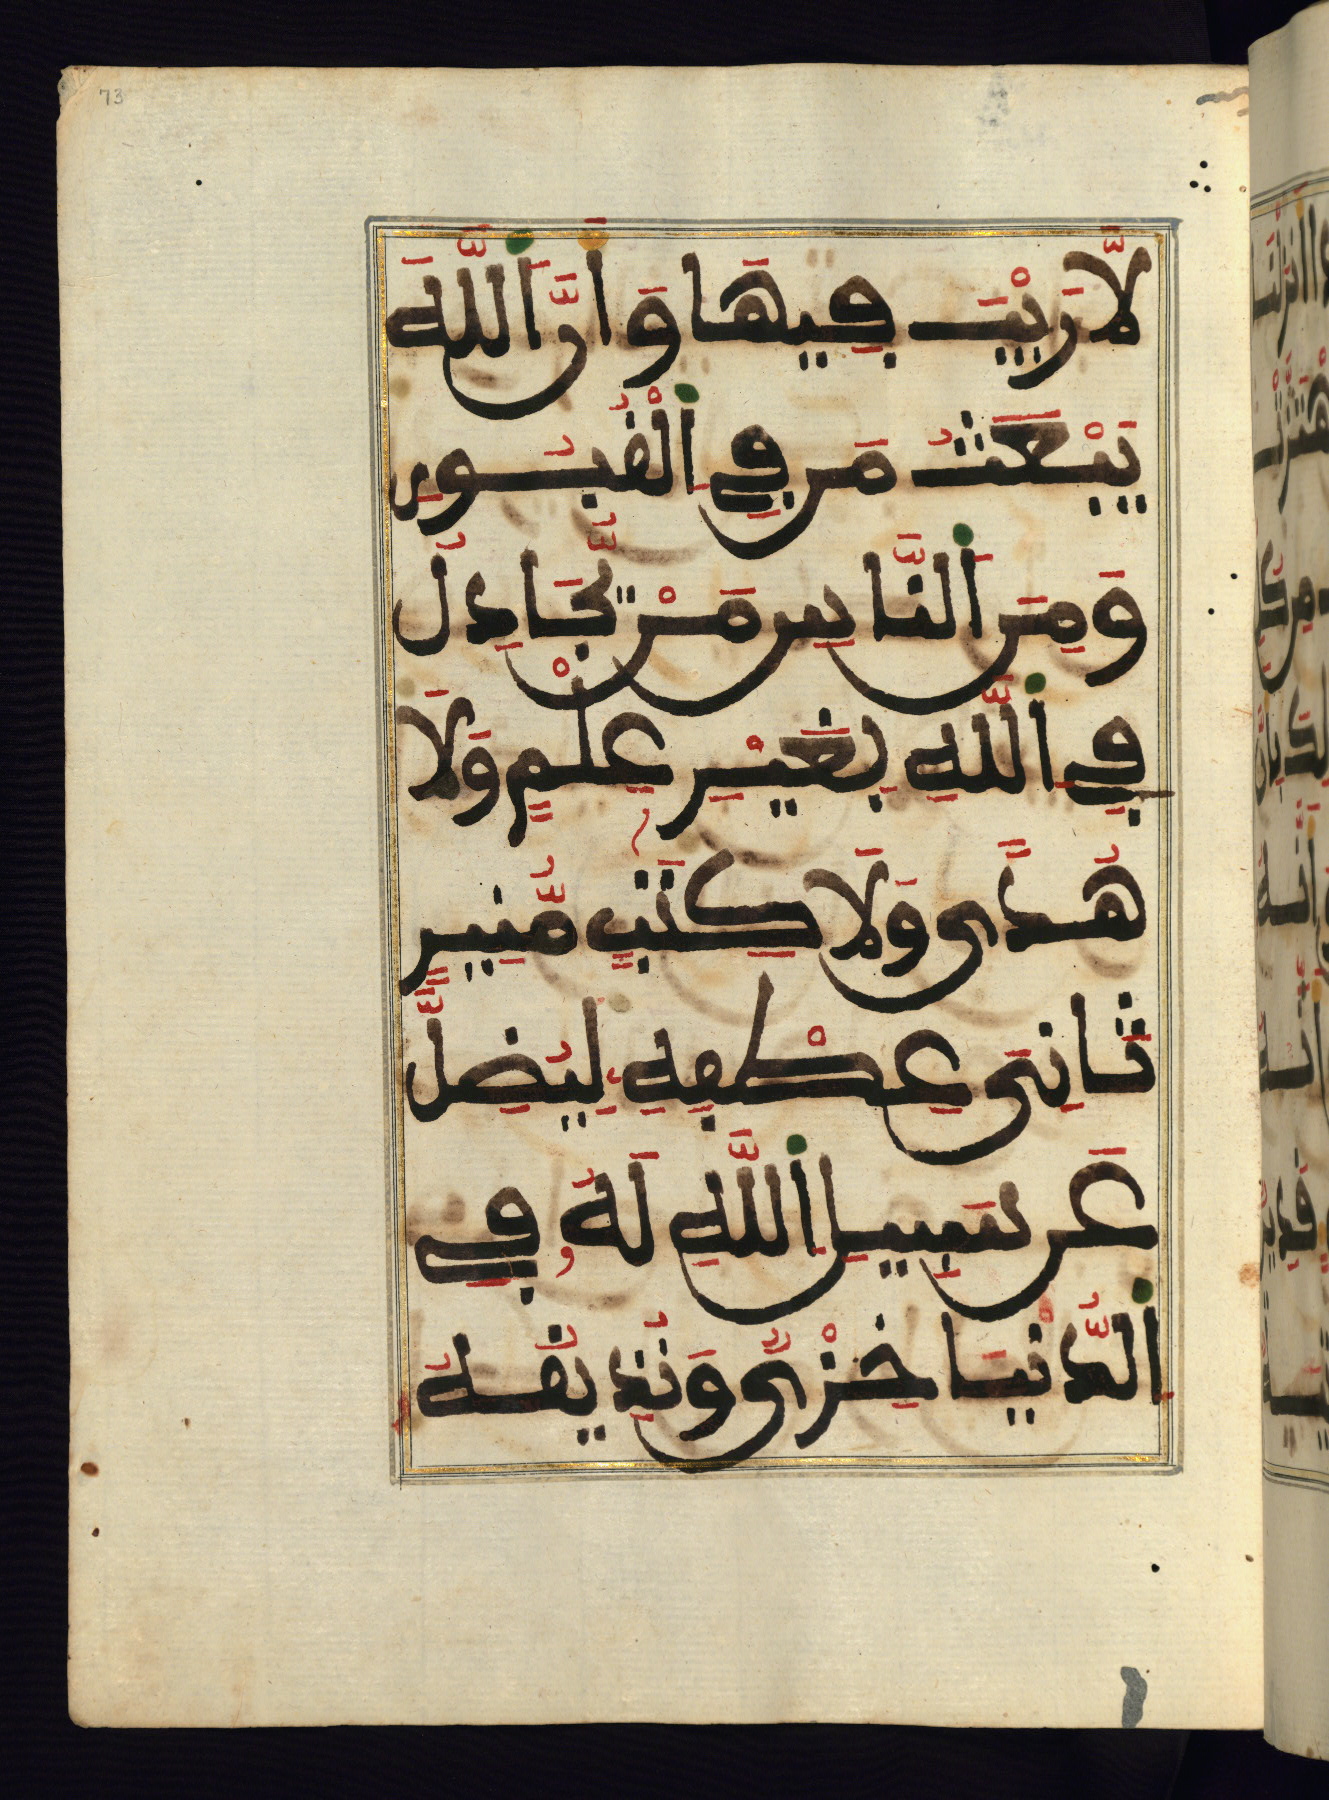 73
لَّا رَيْبَ فِيهَا وَأَنَّ اَللَّهَ
يَبْعَثُ مَن فِي اِلْقُبُورِ
وَمِنَ اَلنَّاسِ مَنْ يُّجَادِلُ
فِي اِللَّهِ بِغَيْرِ عِلْمٍ وَلَا
هُدًى وَلَا كِتَٰبٍ مُّنِيرٍ
ثَانِيَ عِطْفِهِ لِيُضِلَّ
عَن سَبِيلِ اِللَّهِ لَهُ فِي
اِلدُّنْيَا خِزْيٌ وَنُذِيقُهُ